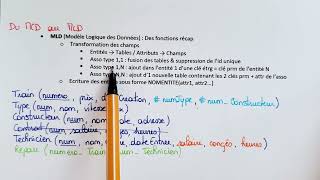 Du MCD au MLD
• MLD (Modèle Logique des Données) : Des fonctions récap
○ Transformation des champs
▪ Entités → Tables / Attributs → Champs
▪ Asso type 1,1 : fusion des tables & suppression de l'id unique
▪ Asso type 1,N : ajout dans l'entité 1 d'une clé étrg = clé prm de l'entité N
▪ Asso type N,N : ajout d'1 nouvelle table contenant les 2 clés prm + attr de l'asso
○ Ecriture des entités sous forme NOMENTITE(attr1, attr2...)
Train (numero, prix, dateCreation, # numType, # num_Constructeur)
Type (num, nom, vitesse
Constructeur (num, nom, adresse
Contrat (num, salaire, congés, heures)
Technicien (num, nom, date Entree, salaire, congés, heures)
Répare (numero_Train, num_Technicien)